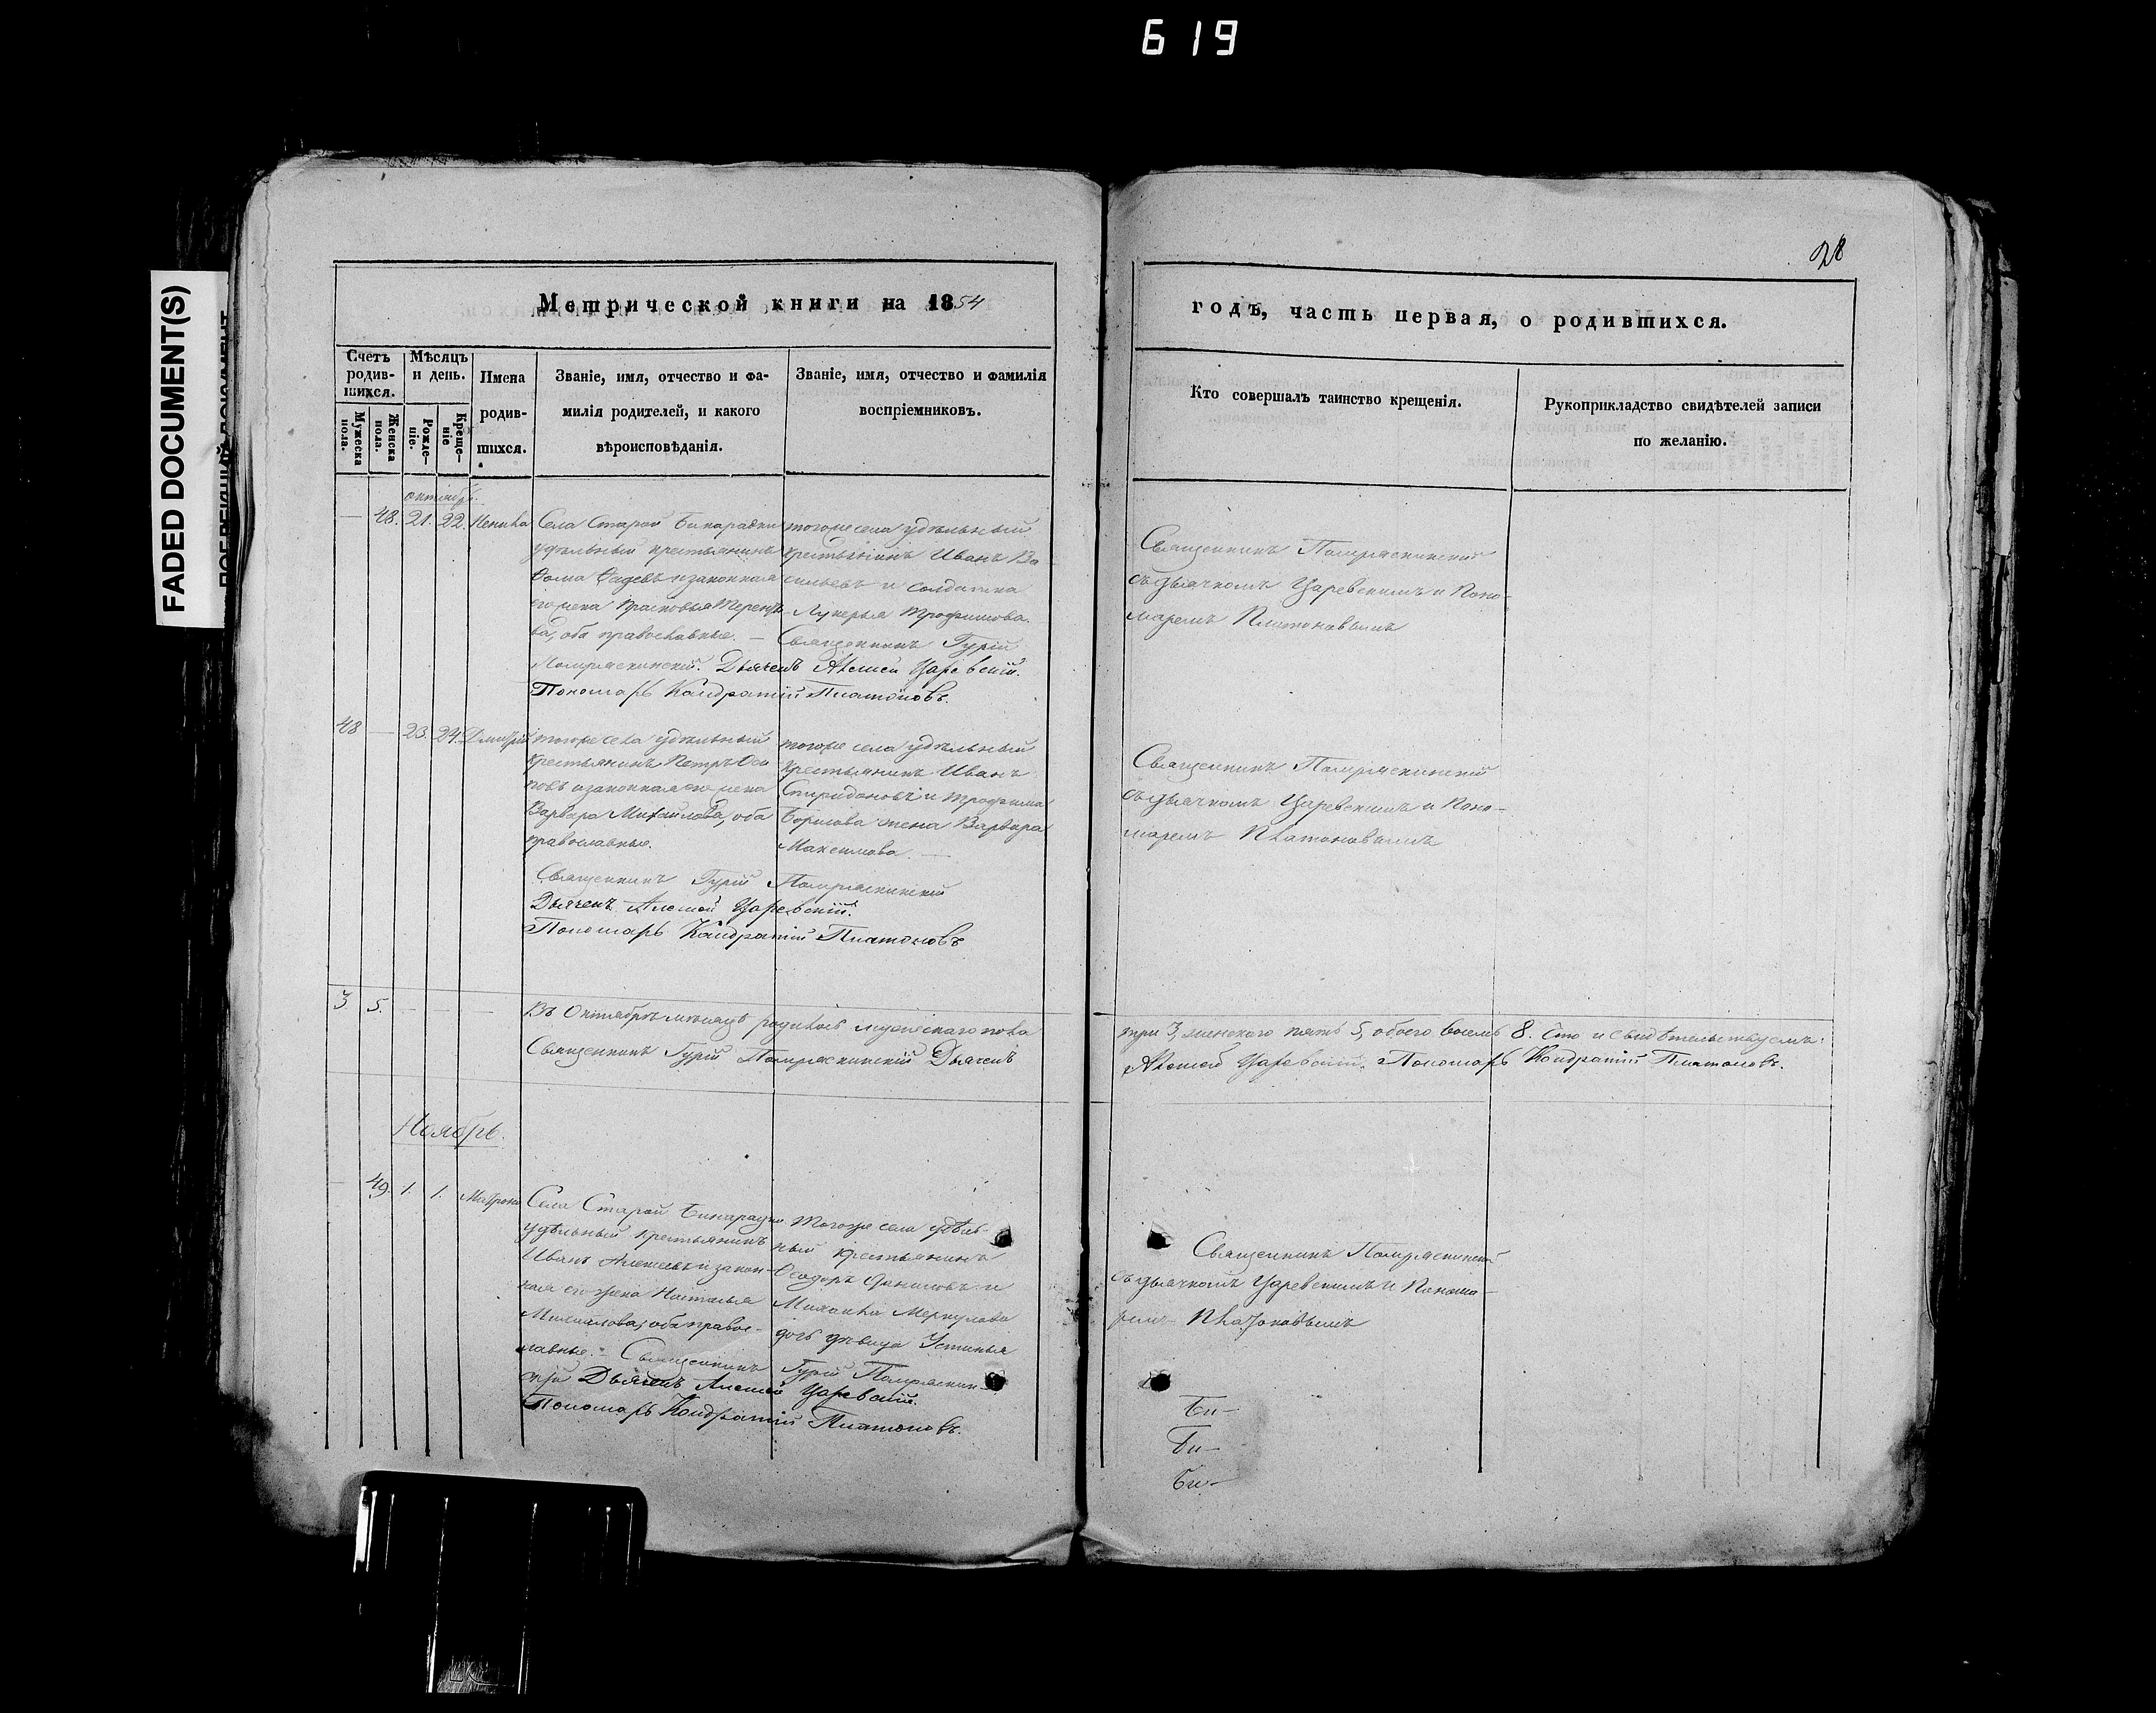 619
FADED DOCUMENT(S)
28
Метрической книги на 1854
годъ, часть первая, о родившихся.
Счетъ родив-шихся.
Мужеска пола.
Женска пола.
Мѣсяцъ и день.
Рожде-ніе.
Креще-ніе
Имена
родив-
шихся.
Званіе, имя, отчество и фа-
милія родителей, и какого
вѣроисповѣданія.
Званіе, имя, отчество и фамилія
воспріемниковъ.
Кто совершалъ таинство крещенія.
Рукоприкладство свидѣтелей записи
по желанію.
48. 21. 22.
Села Старой Бинарадки
удѣльный крестьянинъ
Фома Фадеевъ и законная
его жена Прасковья Терентье
ва, оба православные. —
тогоже села удѣльный
крестьянинъ Иванъ Ва
сильевъ и солдатка
Лукерья Трофимова.
Священникъ Гурій
Дьячекъ Алексей Царевскій.
Пономарь Кондратій Платоновъ.
Священникъ
съ дьячкомъ Царевскимъ и Поно-
маремъ Платоновымъ
48 — 23. 24. Дмитрій
тогоже села удѣльный
крестьянинъ Петръ Оси
повъ и законная его жена
Варвара Михайлова, оба
православные.
тогоже села удѣльный
крестьянинъ Иванъ
Спиридоновъ и Трофима
Борисова жена Варвара
Максимова. —
Священникъ Гурій
Дьячекъ Алексей Царевскій.
Пономарь Кондратій Платоновъ
Священникъ
съ дьячкомъ Царевскимъ и Поно-
маремъ Платоновымъ
3 5. — — —
Въ Октябрѣ мѣсяцѣ родилось мужескаго пола
три 3, женского пять 5, обоего восемь 8. Сто и свидѣтельствуемъ:
Священникъ Гурій Дьячекъ
Алексей Царевскій. Пономарь Кондратій Платоновъ.
Ноябрь.
49. 1. 1. Матрона
Села Старой Бинарадки
удѣльный крестьянинъ
Иванъ Алексеевъ и закон-
ная его жена Наталья
оба право-
славные. —
Тогоже села удѣль-
ный крестьянинъ
Феодоръ Даниловъ и
Меркулова
дочь дѣвица Устинья
Священникъ Гурій
Дьячекъ Алексей Царевскій.
Пономарь Кондратій Платоновъ.
Священникъ
съ дьячкомъ Царевскимъ и Понома-
ремъ Платоновымъ
Би-
Би-
Би-